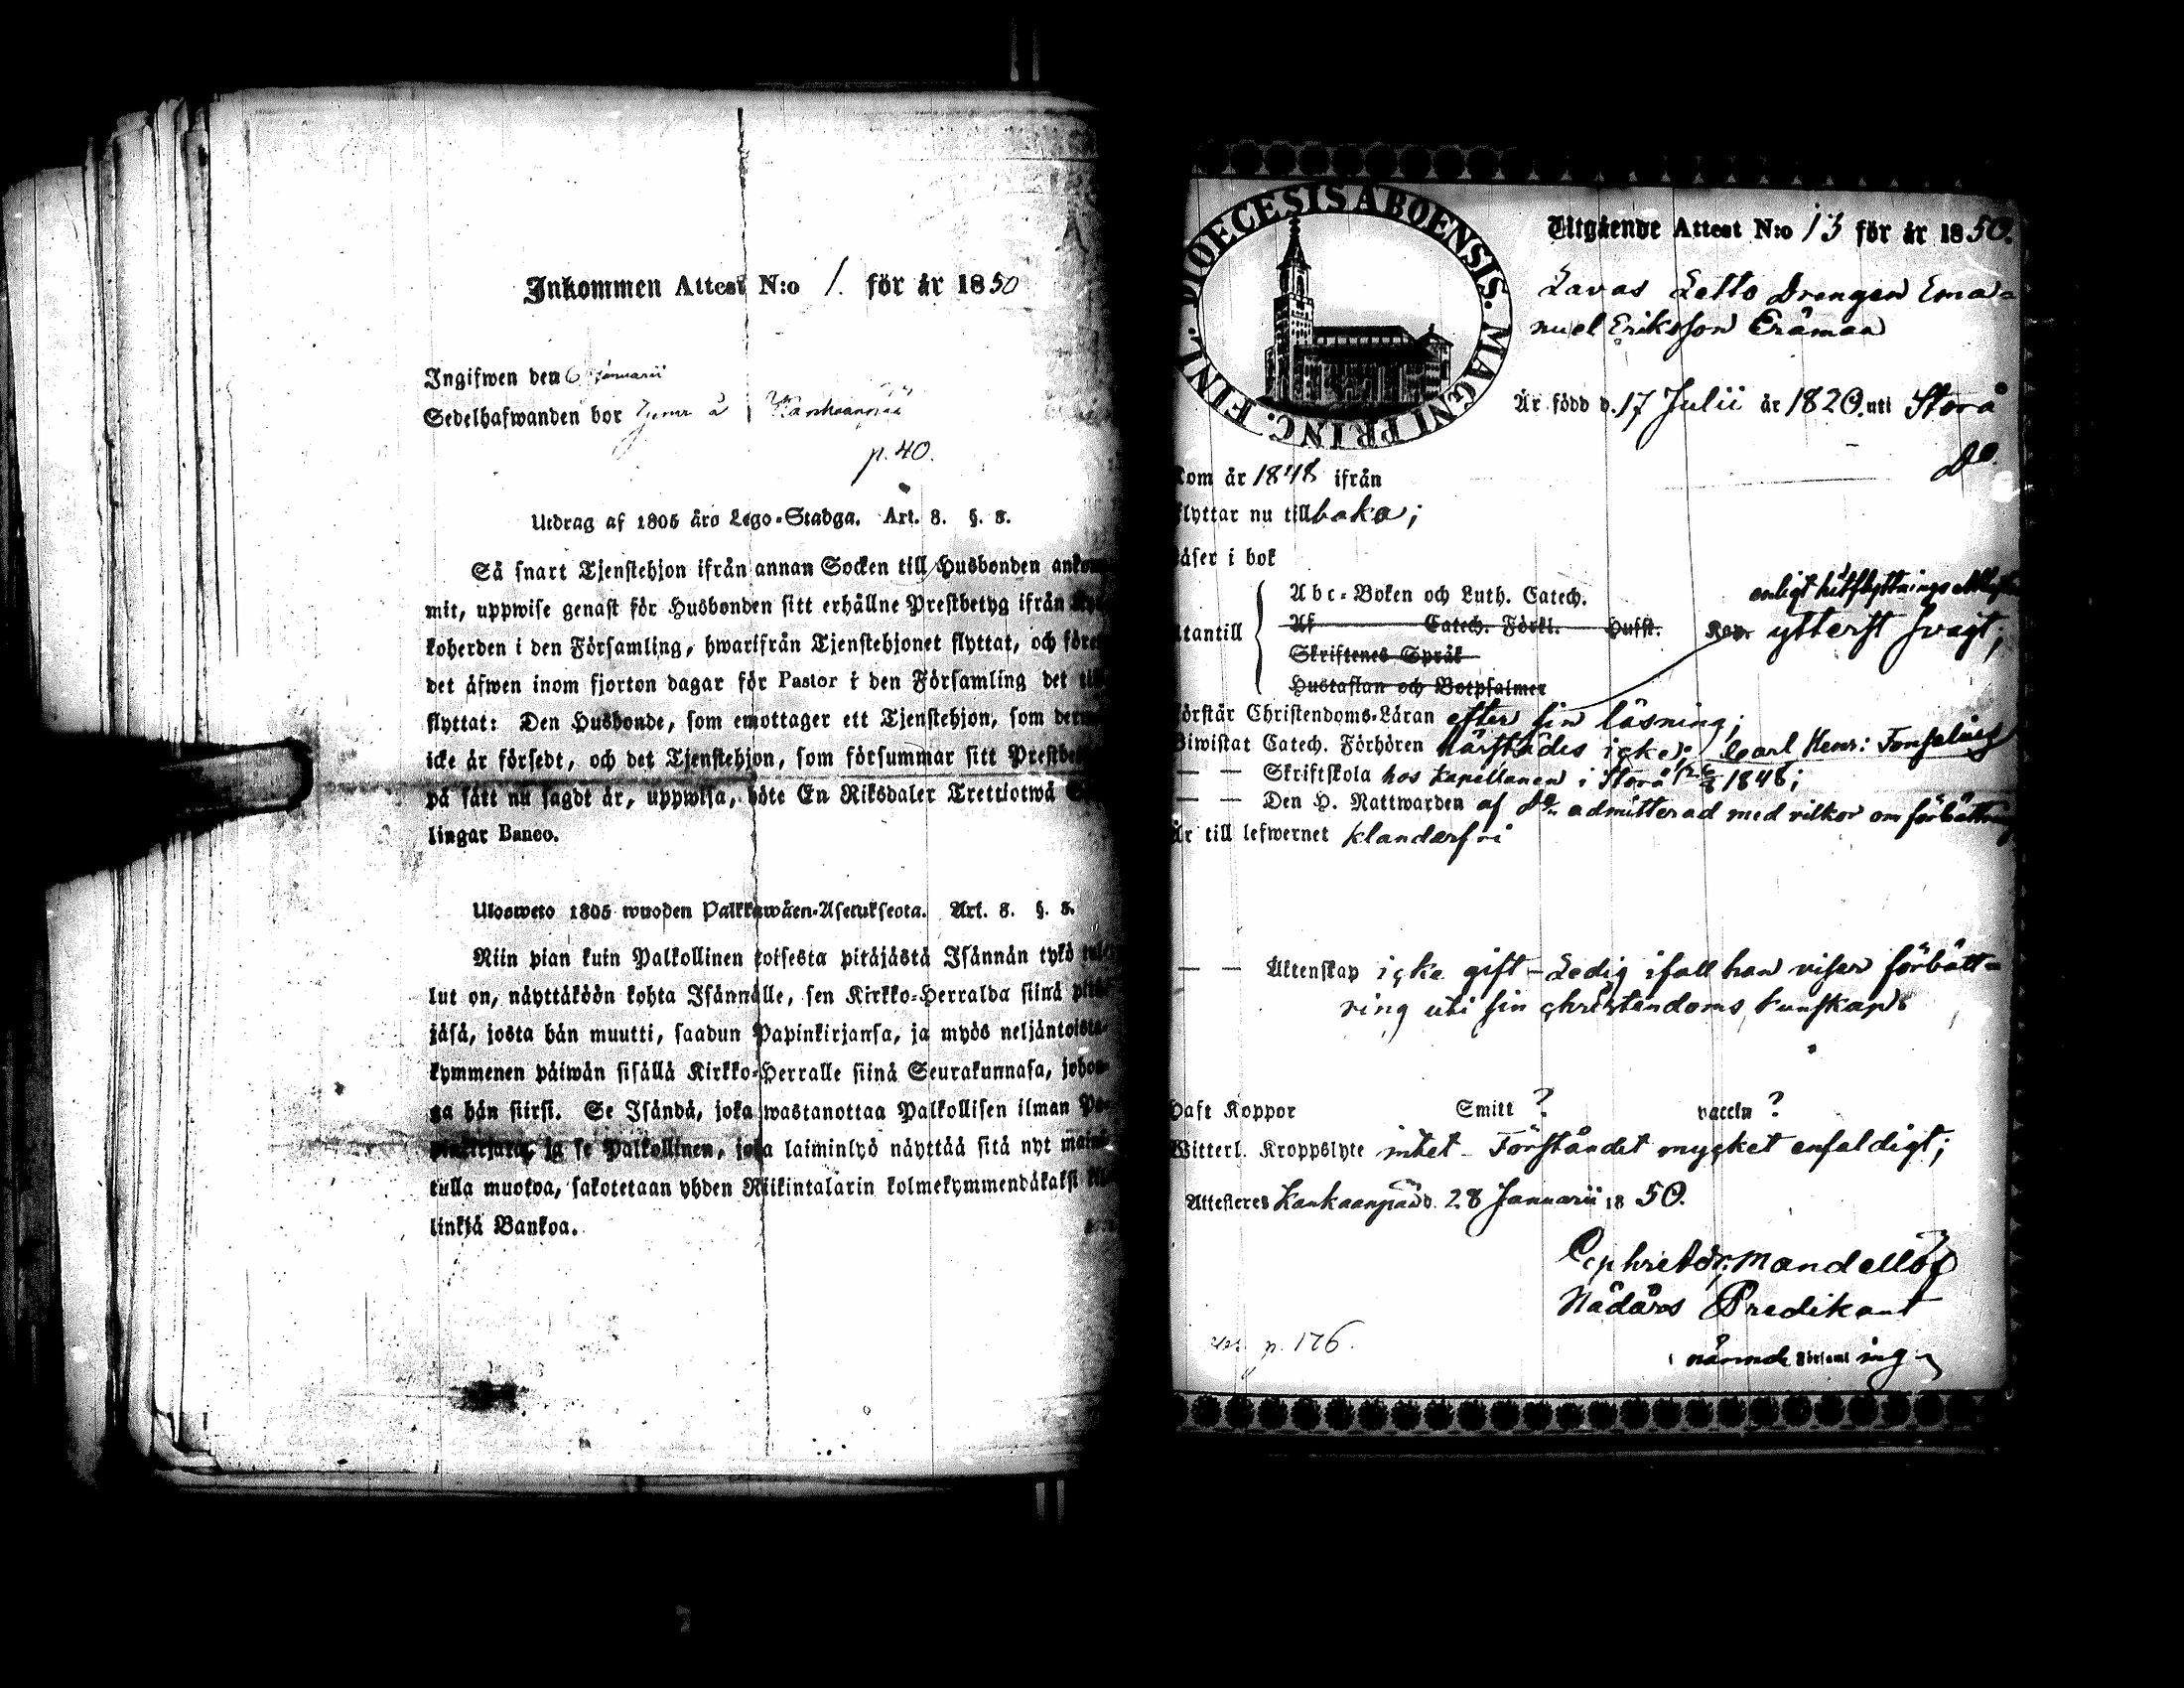 Inkommen Attest N:o 1. för år 1850
Ingifwen den 6 Januarii
Sedelhafwanden bor å Kankaanpää
p. 40.
Utdrag af 1805 års Lego-Stadga. Art. 8. §. 8.
Så snart Tjenstehjon ifrån annan Socken till Husbonden ankom
mit, uppwise genast för Husbonden sitt erhållne Prestbetyg ifrån
koherden i den Församling, hwarifrån Tjenstehjonet flyttat, och före
det äfwen inom fjorton dagar för Pastor i den Församling det
flyttat: Den Husbonde, som emottager ett Tjenstehjon, som
icke är försedt, och det Tjenstehjon, som försummar sitt
på sätt nu sagdt är, uppwisa, böte En Riksdaler Trettiotwå
lingar Banco.
Ulosweto 1805 wuoden Palkkawäen-Asetuksesta. Art. 8. §. 8.
Niin pian kuin Palkollinen toisesta pitäjästä Isännän tykö
lut on, näyttäköön kohta Isännälle, sen Kirkko-Herralda siinä
jäsä, josta hän muutti, saadun Papinkirjansa, ja myös neljäntoista-
kymmenen päiwän sisällä Kirkko-Herralle siinä Seurakunnasa, johon-
ga hän siirsi. Se Isändä, joka wastanottaa Palkollisen ilman
ja se Palkollinen, joka laiminlyö näyttää sitä nyt
tulla muotoa, sakotetaan yhden Riikintalarin kolmekymmendäkaksi
linkiä Bankoa.
DIOECESIS ABOENSIS. MAGNI PRINC. FINL.
Utgående Attest N:o 13 för år 1850.
Lavas Letto Drengen Ema-
nuel Eriksson Eräman
Är född d. 17 Julii år 1820. uti Storå
Kom år 1848 ifrån Do
flyttar nu tillbaka;
Läser i bok
Abc-Boken och Luth. Catech.
enligt hitflyttnings
utantill Af Catech. Förkl. Husst. ytterst svagt;
Skriftenes Språk
Hustaflan och Botpsalmer
Förstår Christendoms-Läran efter sin läsning;
Biwistat Catech. Förhören härstädes icke; Carl Henr:
— — Skriftskola hos Kapellanen i Storå 1848;
— — Den H. Nattwarden af Do admitterad med vilkor om förbättring
Är till lefwernet klanderfri
— — Äktenskap icke gift - Ledig ifall han viser förbätt-
ring uti sin christendoms kunskap
Haft Koppor Smitt ? vaccin ?
Witterl. Kroppslyte intet - Förståndet mycket enfaldigt;
Attesteres Kankaanpää d. 28 Januarii 1850.
Mandellöf
Nådårs Predikant
nämnde Församl ing
p. 176.